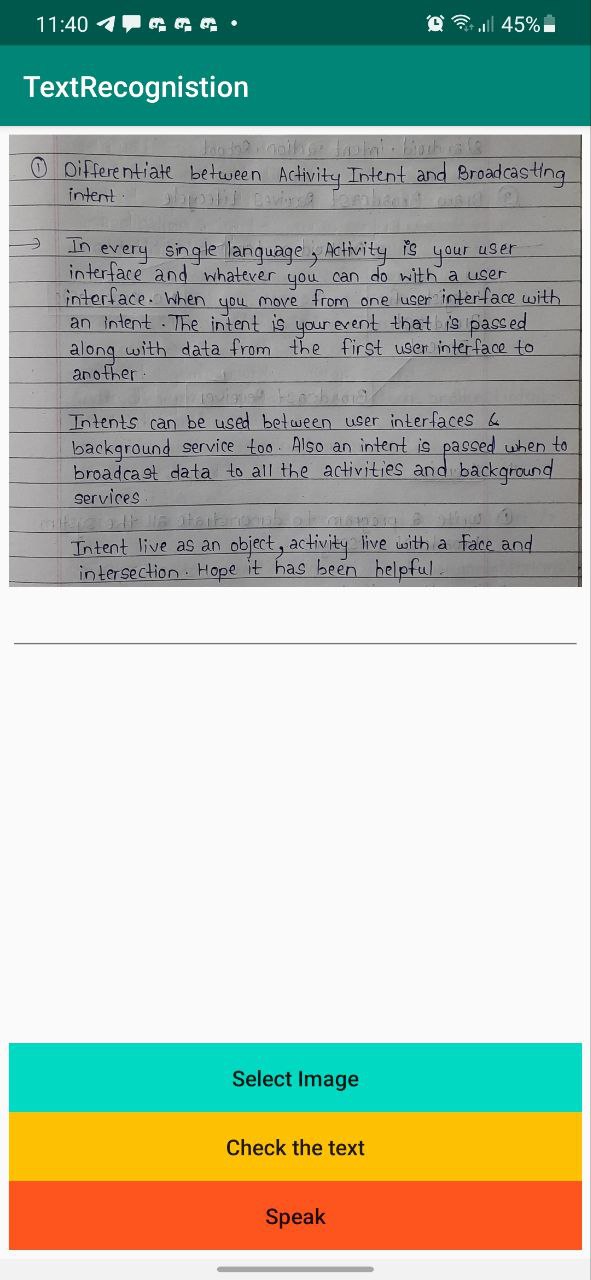 11:40
45%
TextRecognistion
① Differentiate between Activity Intent and Broadcasting
intent.
→ In every single language, Activity is your user
interface and whatever you can do with a user
interface. When you move from one user interface with
an intent. The intent is your event that is passed
along with data from the first user interface to
another.
Intents can be used between user interfaces &
background service too. Also an intent is passed when to
broadcast data to all the activities and background
services.
Intent live as an object, activity live with a face and
intersection. Hope it has been helpful.
Select Image
Check the text
Speak